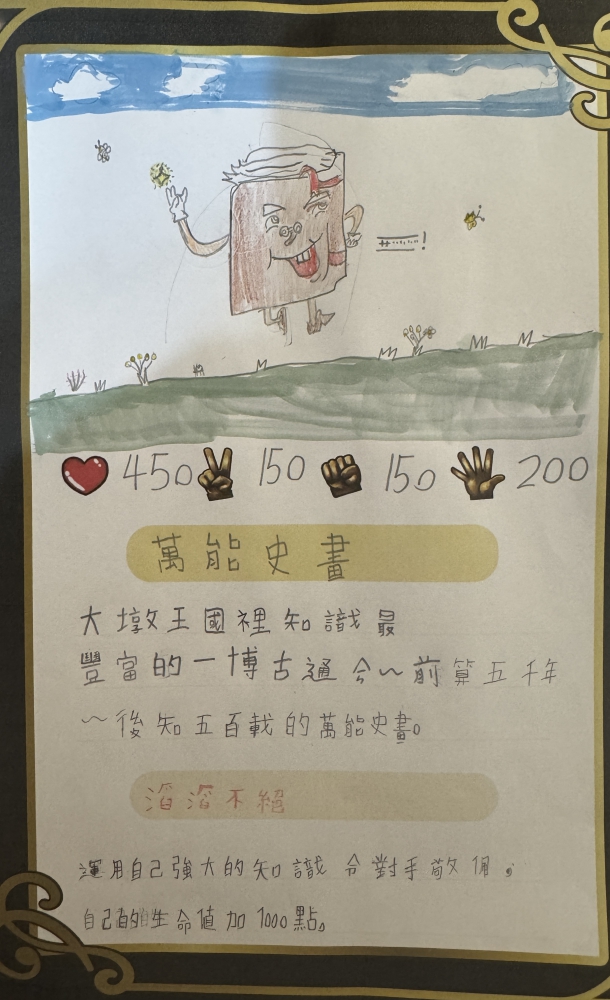 450 150 150 200
萬能史畫
大墩王國裡知識最
豐富的一博古通今~前算五千年
~後知五百載的萬能史畫。
滔滔不絕
運用自己強大的知識令對手敬佩，
自己的生命值加1000點。